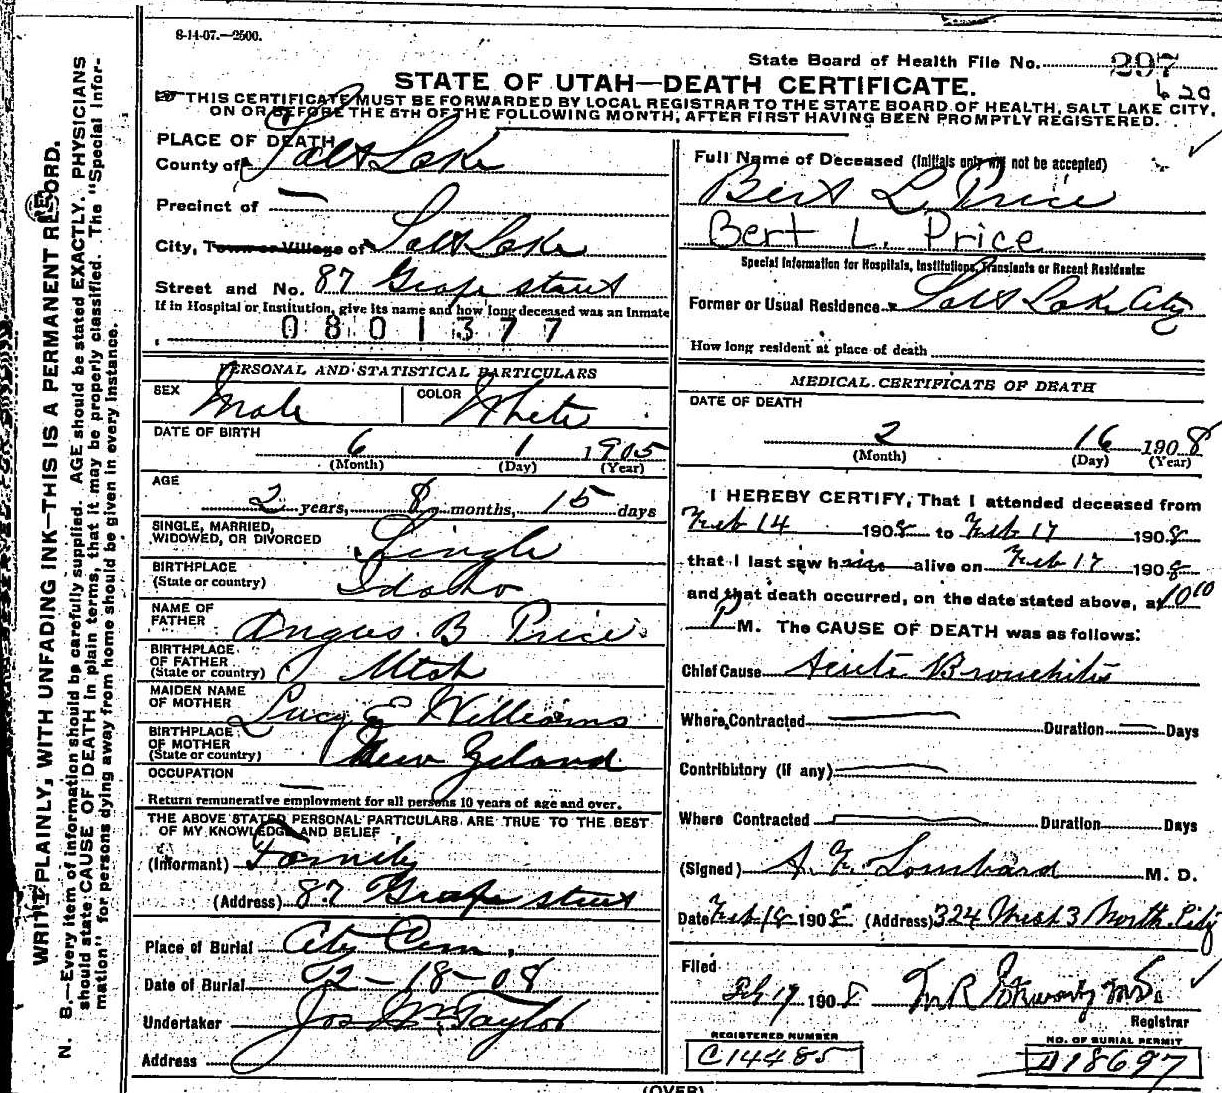 8-14-07.—2500.
State Board of Health File No. 297
620
STATE OF UTAH—DEATH CERTIFICATE.
THIS CERTIFICATE MUST BE FORWARDED BY LOCAL REGISTRAR TO THE STATE BOARD OF HEALTH, SALT LAKE CITY,
ON OR BEFORE THE 5TH OF THE FOLLOWING MONTH, AFTER FIRST HAVING BEEN PROMPTLY REGISTERED.
WRITE PLAINLY, WITH UNFADING INK—THIS IS A PERMANENT RECORD.
N. B.—Every item of information should be carefully supplied. AGE should be stated EXACTLY. PHYSICIANS
should state CAUSE OF DEATH in plain terms, that it may be properly classified. The "Special Infor-
mation" for persons dying away from home should be given in every instance.
PLACE OF DEATH
County of Salt Lake
Precinct of —
City, Town or Village of Salt Lake
Street and No. 87 Grape street
If in Hospital or Institution, give its name and how long deceased was an Inmate
0801377
PERSONAL AND STATISTICAL PARTICULARS
SEX Male COLOR White
DATE OF BIRTH
6 1 1905
(Month) (Day) (Year)
AGE
2 years, 8 months, 15 days
SINGLE, MARRIED,
WIDOWED, OR DIVORCED Single
BIRTHPLACE
(State or country) Idaho
NAME OF
FATHER Angus B Price
BIRTHPLACE
OF FATHER
(State or country) Utah
MAIDEN NAME
OF MOTHER Lucy E Williams
BIRTHPLACE
OF MOTHER
(State or country) New Zeland
OCCUPATION —
Return remunerative employment for all persons 10 years of age and over.
THE ABOVE STATED PERSONAL PARTICULARS ARE TRUE TO THE BEST
OF MY KNOWLEDGE AND BELIEF
(Informant) Family
(Address) 87 Grape street
Place of Burial City Cem.
Date of Burial 2-18-08
Undertaker Jos Wm Taylor
Address
Full Name of Deceased (Initials only will not be accepted)
Bert L. Price
Bert L. Price
Special Information for Hospitals, Institutions, Transients or Recent Residents:
Former or Usual Residence Salt Lake City
How long resident at place of death
MEDICAL CERTIFICATE OF DEATH
DATE OF DEATH
2 16 1908
(Month) (Day) (Year)
I HEREBY CERTIFY, That I attended deceased from
Feb 14 1908 to Feb 17 1908
that I last saw him alive on Feb 17 1908
and that death occurred, on the date stated above, at 10 10
P M. The CAUSE OF DEATH was as follows:
Chief Cause Acute Bronchitis
Where Contracted — Duration — Days
Contributory (if any) —
Where Contracted — Duration — Days
(Signed) A. F. Lombard M. D.
Date Feb 18 1908 (Address) 324 West 3 North City
Filed
Feb 19 1908
Registrar
REGISTERED NUMBER
C14485
NO. OF BURIAL PERMIT
D18697
(OVER)